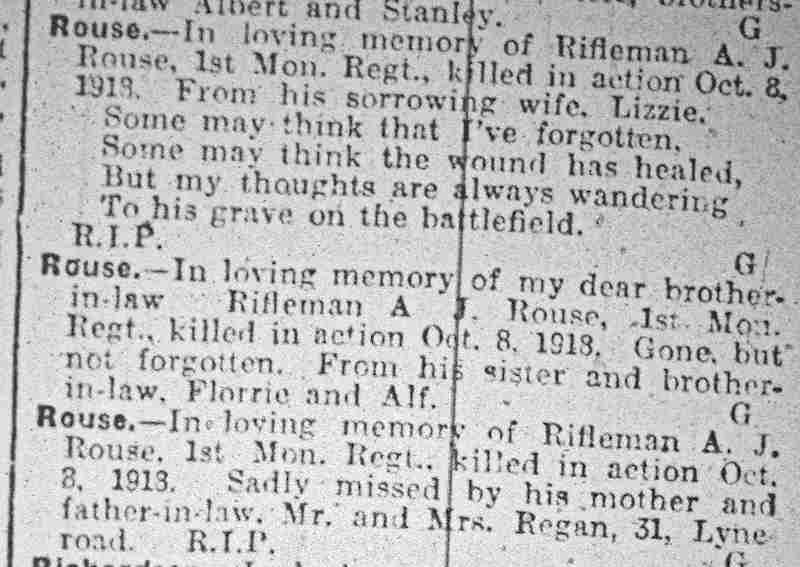 brothers-
in-law Albert and Stanley.
G
Rouse.—In loving memory of Rifleman A. J.
Rouse, 1st Mon. Regt., killed in action Oct. 8,
1918. From his sorrowing wife, Lizzie.
Some may think that I've forgotten,
Some may think the wound has healed,
But my thoughts are always wandering
To his grave on the battlefield.
R.I.P.
G
Rouse.—In loving memory of my dear brother-
in-law Rifleman A J. Rouse, 1st Mon.
Regt., killed in action Oct. 8, 1918. Gone, but
not forgotten. From his sister and brother-
in-law, Florrie and Alf.
G
Rouse.—In loving memory of Rifleman A. J.
Rouse, 1st Mon. Regt., killed in action Oct.
8, 1918. Sadly missed by his mother and
father-in-law, Mr. and Mrs. Regan, 31, Lyne-
road. R.I.P.
G